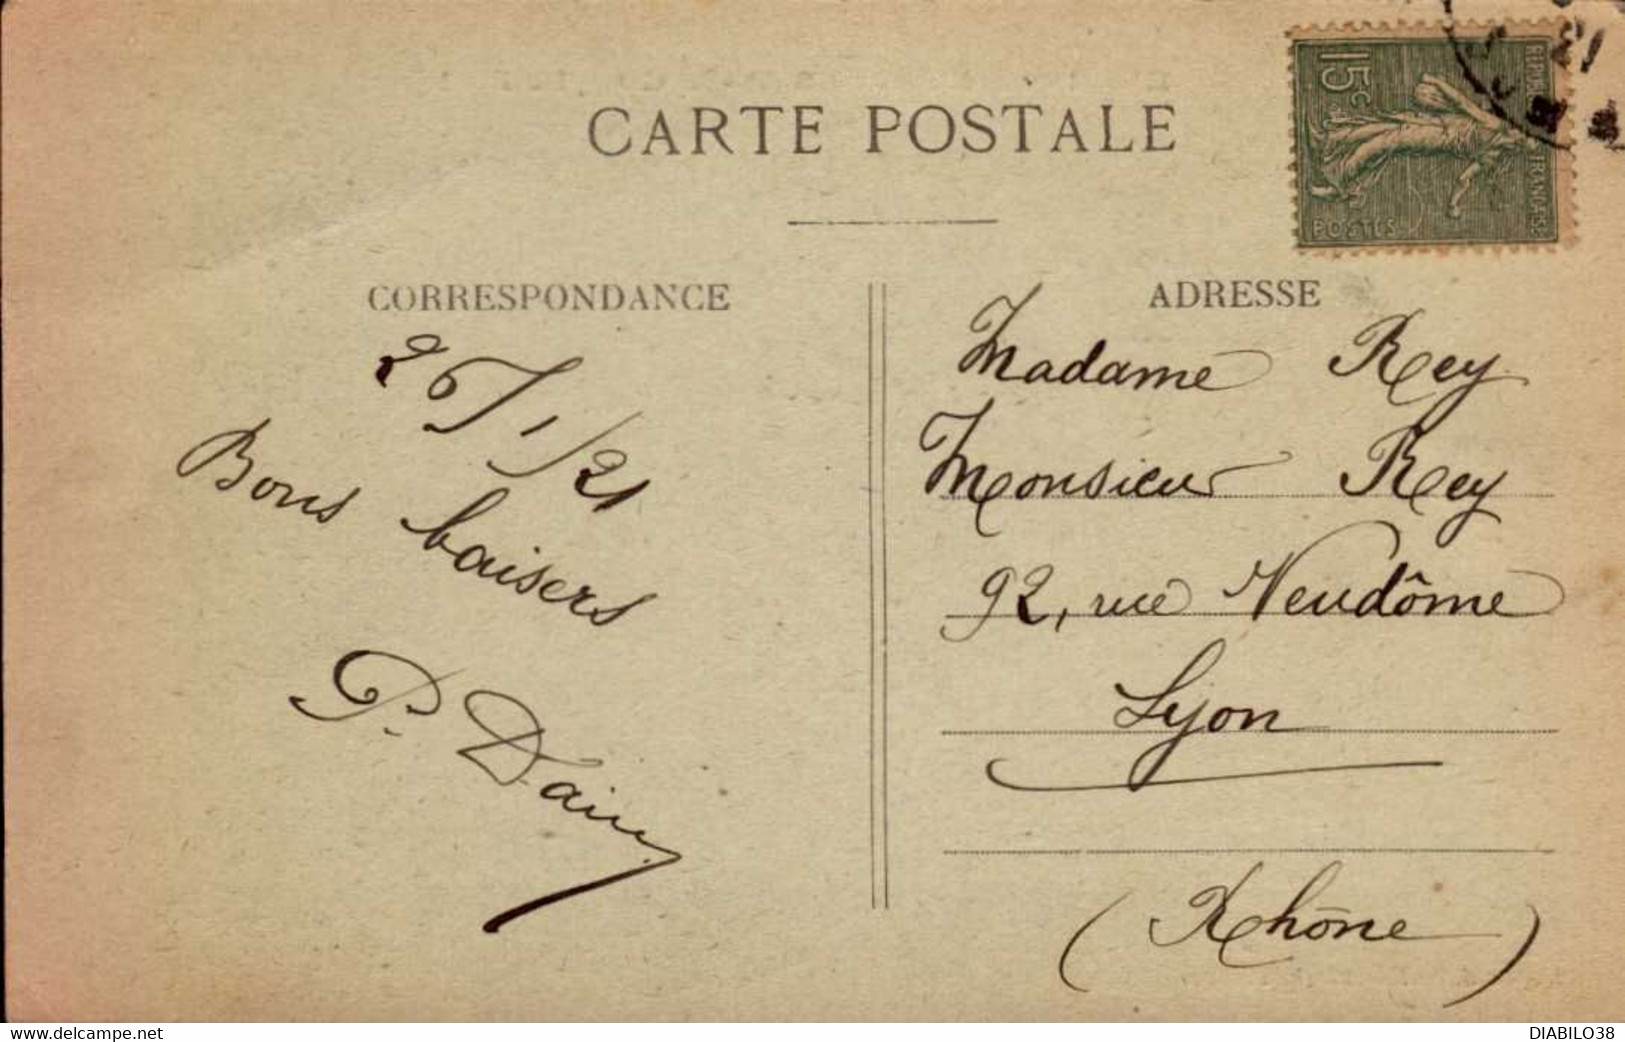 CARTE POSTALE
15c
REPUBLIQUE FRANCAISE
POSTES
CORRESPONDANCE
26/1/21
Bons baisers
P. Dain
ADRESSE
Madame Rey
Monsieur Rey
92, rue Vendôme
Lyon
(Rhône)
www.delcampe.net
DIABILO38